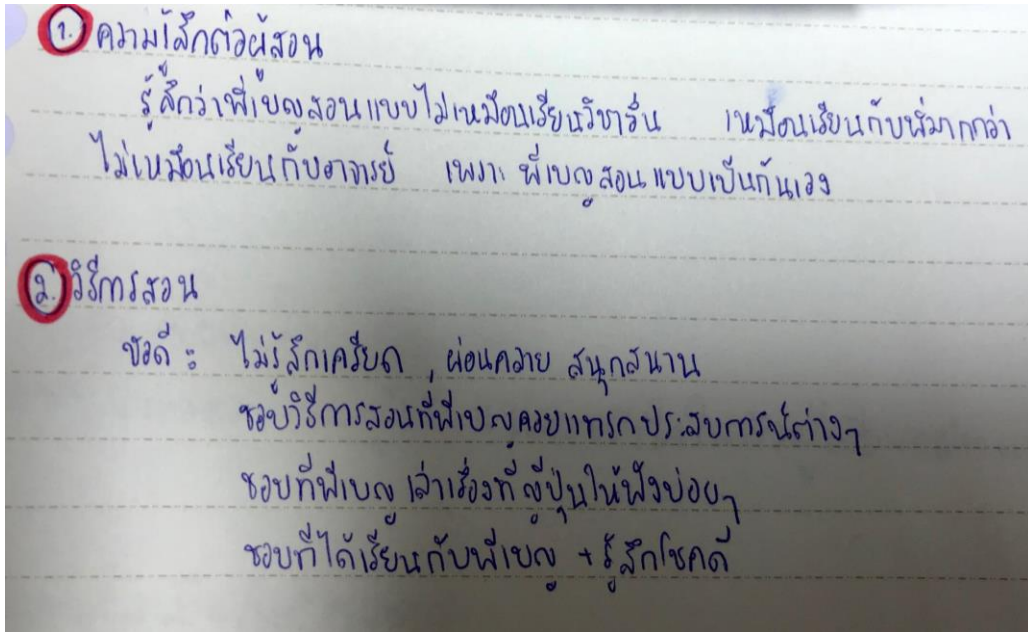 1. ความรู้สึกต่อผู้สอน
รู้สึกว่าพี่เบญสอนแบบไม่เหมือนเรียนวิชาอื่น เหมือนเรียนกับพี่มากกว่า
ไม่เหมือนเรียนกับอาจารย์ เพราะ พี่เบญสอนแบบเป็นกันเอง
2. วิธีการสอน
ข้อดี : ไม่รู้สึกเครียด , ผ่อนคลาย สนุกสนาน
ชอบวิธีการสอนที่พี่เบญคอยแทรกประสบการณ์ต่างๆ
ชอบที่พี่เบญ เล่าเรื่องที่ญี่ปุ่นให้ฟังบ่อยๆ
ชอบที่ได้เรียนกับพี่เบญ + รู้สึกโชคดี